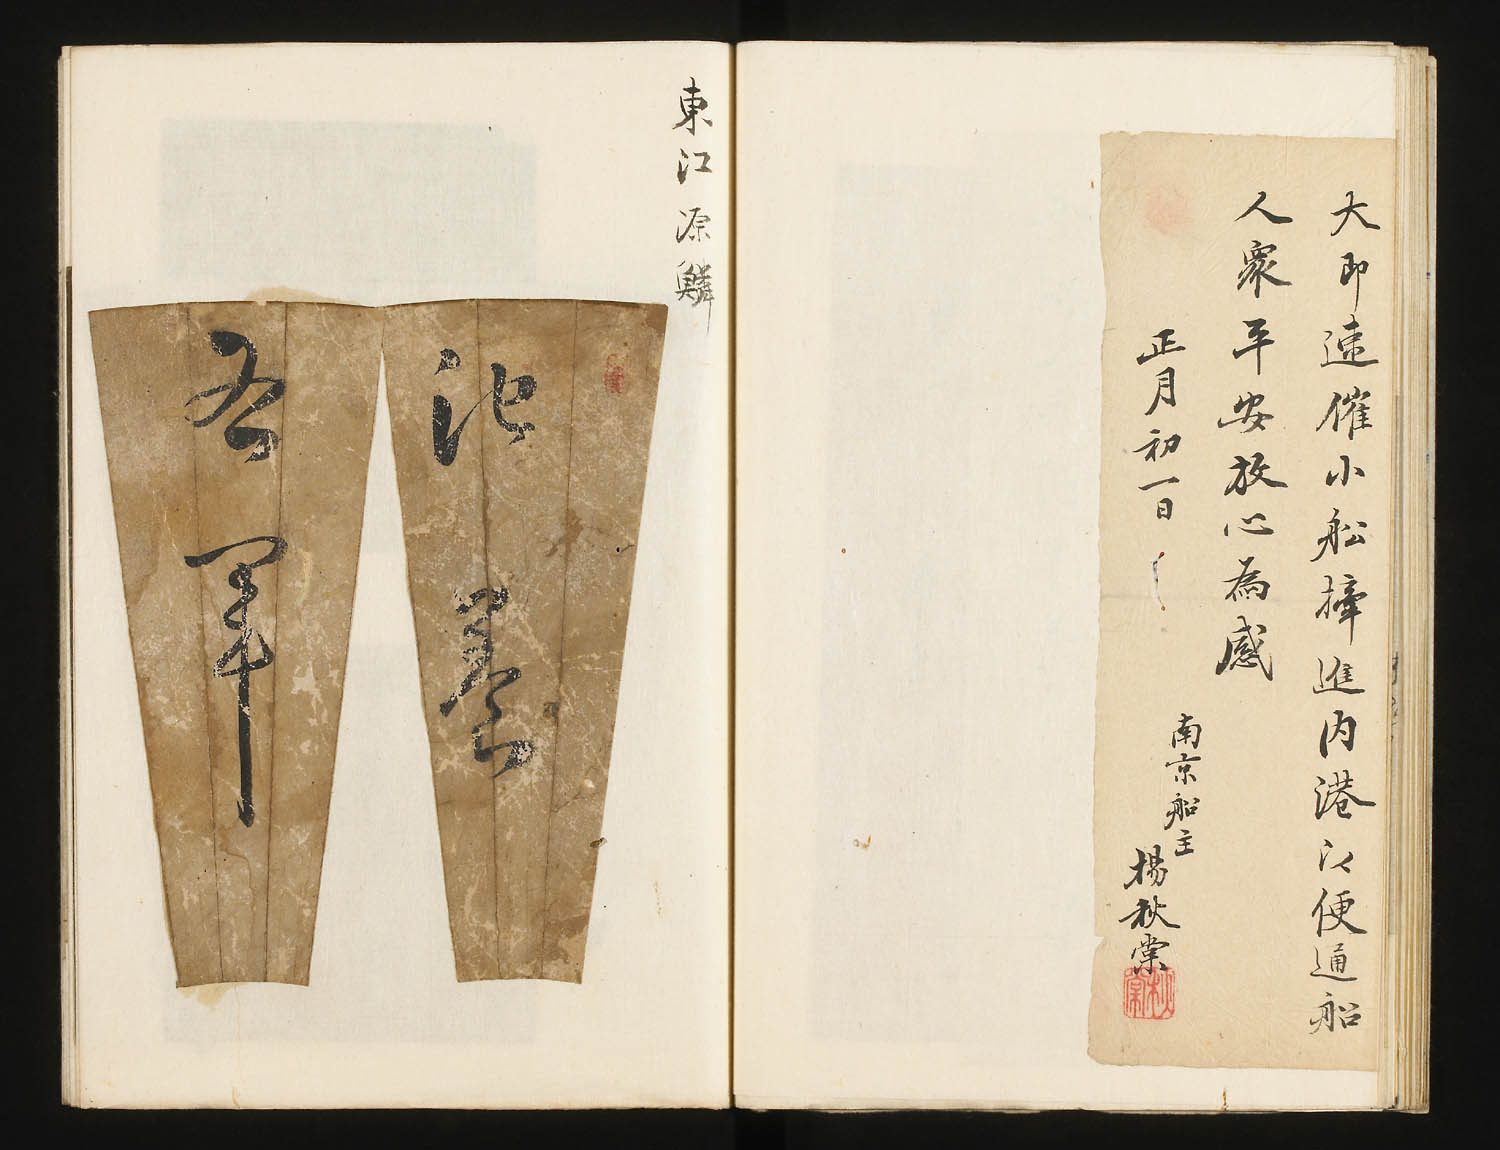 大即速催小船撑進内港以便通船
人衆平安放心為感
正月初一日
南京船主
楊秋棠
東江源鱗